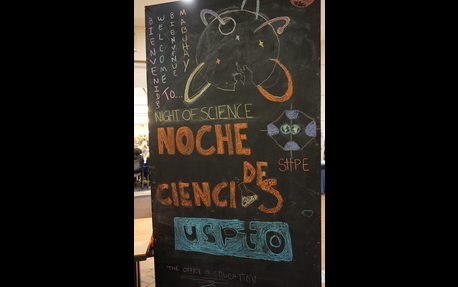 BIENVENIDOS
WELCOME
BIENVENUE
MABUHAY
TO...
NIGHT OF SCIENCE
NOCHE
DE
CIENCIAS
SHPE
uspto
THE OFFICE OF EDUCATION